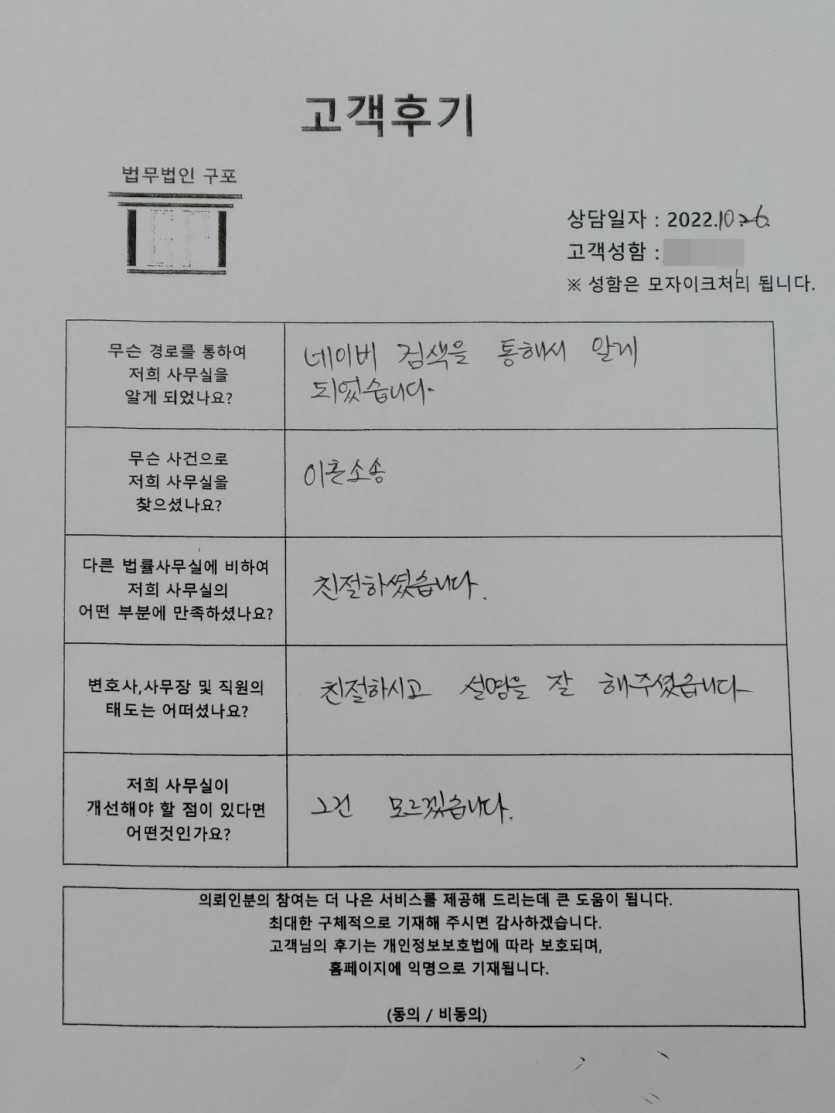 고객후기
법무법인 구포
상담일자 : 2022.10.26.
고객성함 :
※ 성함은 모자이크처리 됩니다.
무슨 경로를 통하여
저희 사무실을
알게 되었나요?
네이버 검색을 통해서 알게
되었습니다.
무슨 사건으로
저희 사무실을
찾으셨나요?
이혼소송
다른 법률사무실에 비하여
저희 사무실의
어떤 부분에 만족하셨나요?
친절하셨습니다.
변호사,사무장 및 직원의
태도는 어떠셨나요?
친절하시고 설명을 잘 해주셨습니다
저희 사무실이
개선해야 할 점이 있다면
어떤것인가요?
그건 모르겠습니다.
의뢰인분의 참여는 더 나은 서비스를 제공해 드리는데 큰 도움이 됩니다.
최대한 구체적으로 기재해 주시면 감사하겠습니다.
고객님의 후기는 개인정보보호법에 따라 보호되며,
홈페이지에 익명으로 기재됩니다.
(동의 / 비동의)